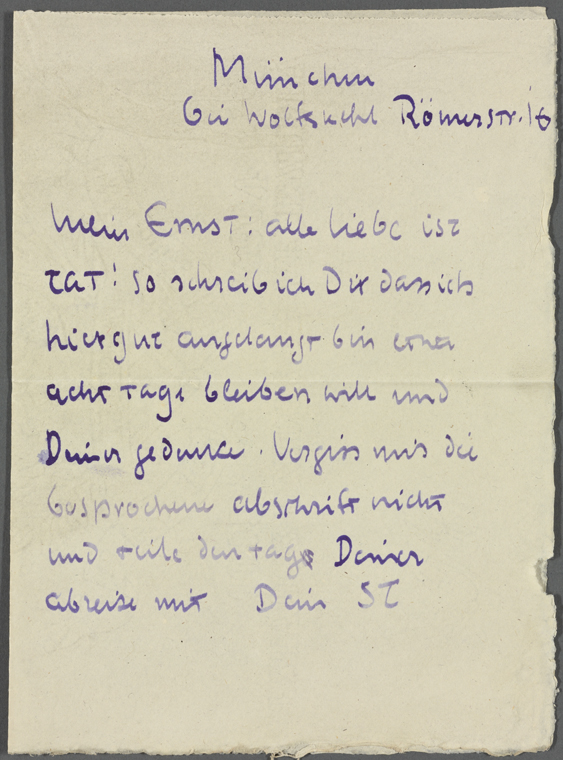 München
bei Wolfskehl Römerstr. 16
Mein Ernst: alle liebe ist
tat! so schreib ich Dir dass ich
hier gut angelangt bin etwa
acht tage bleiben will und
Deiner gedenke. Vergiss mir die
besprochene abschrift nicht
und teile den tag Deiner
abreise mit Dein ST